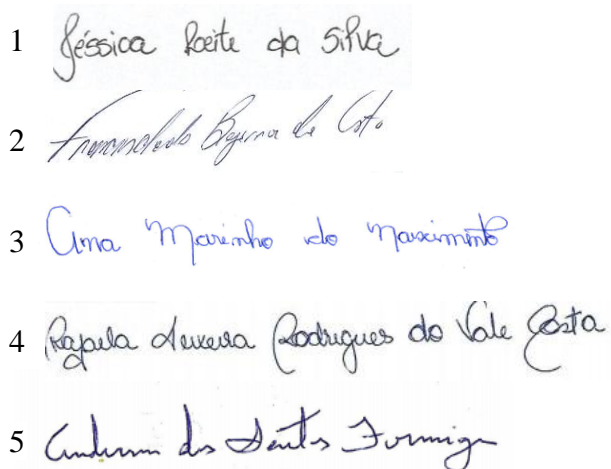 1 Jéssica Leite da Silva
2 Bezerra da Costa
3 Ana Marinho do Nascimento
4 Rafaela Teixeira Rodrigues do Vale Costa
5 Anderson dos Santos Formiga